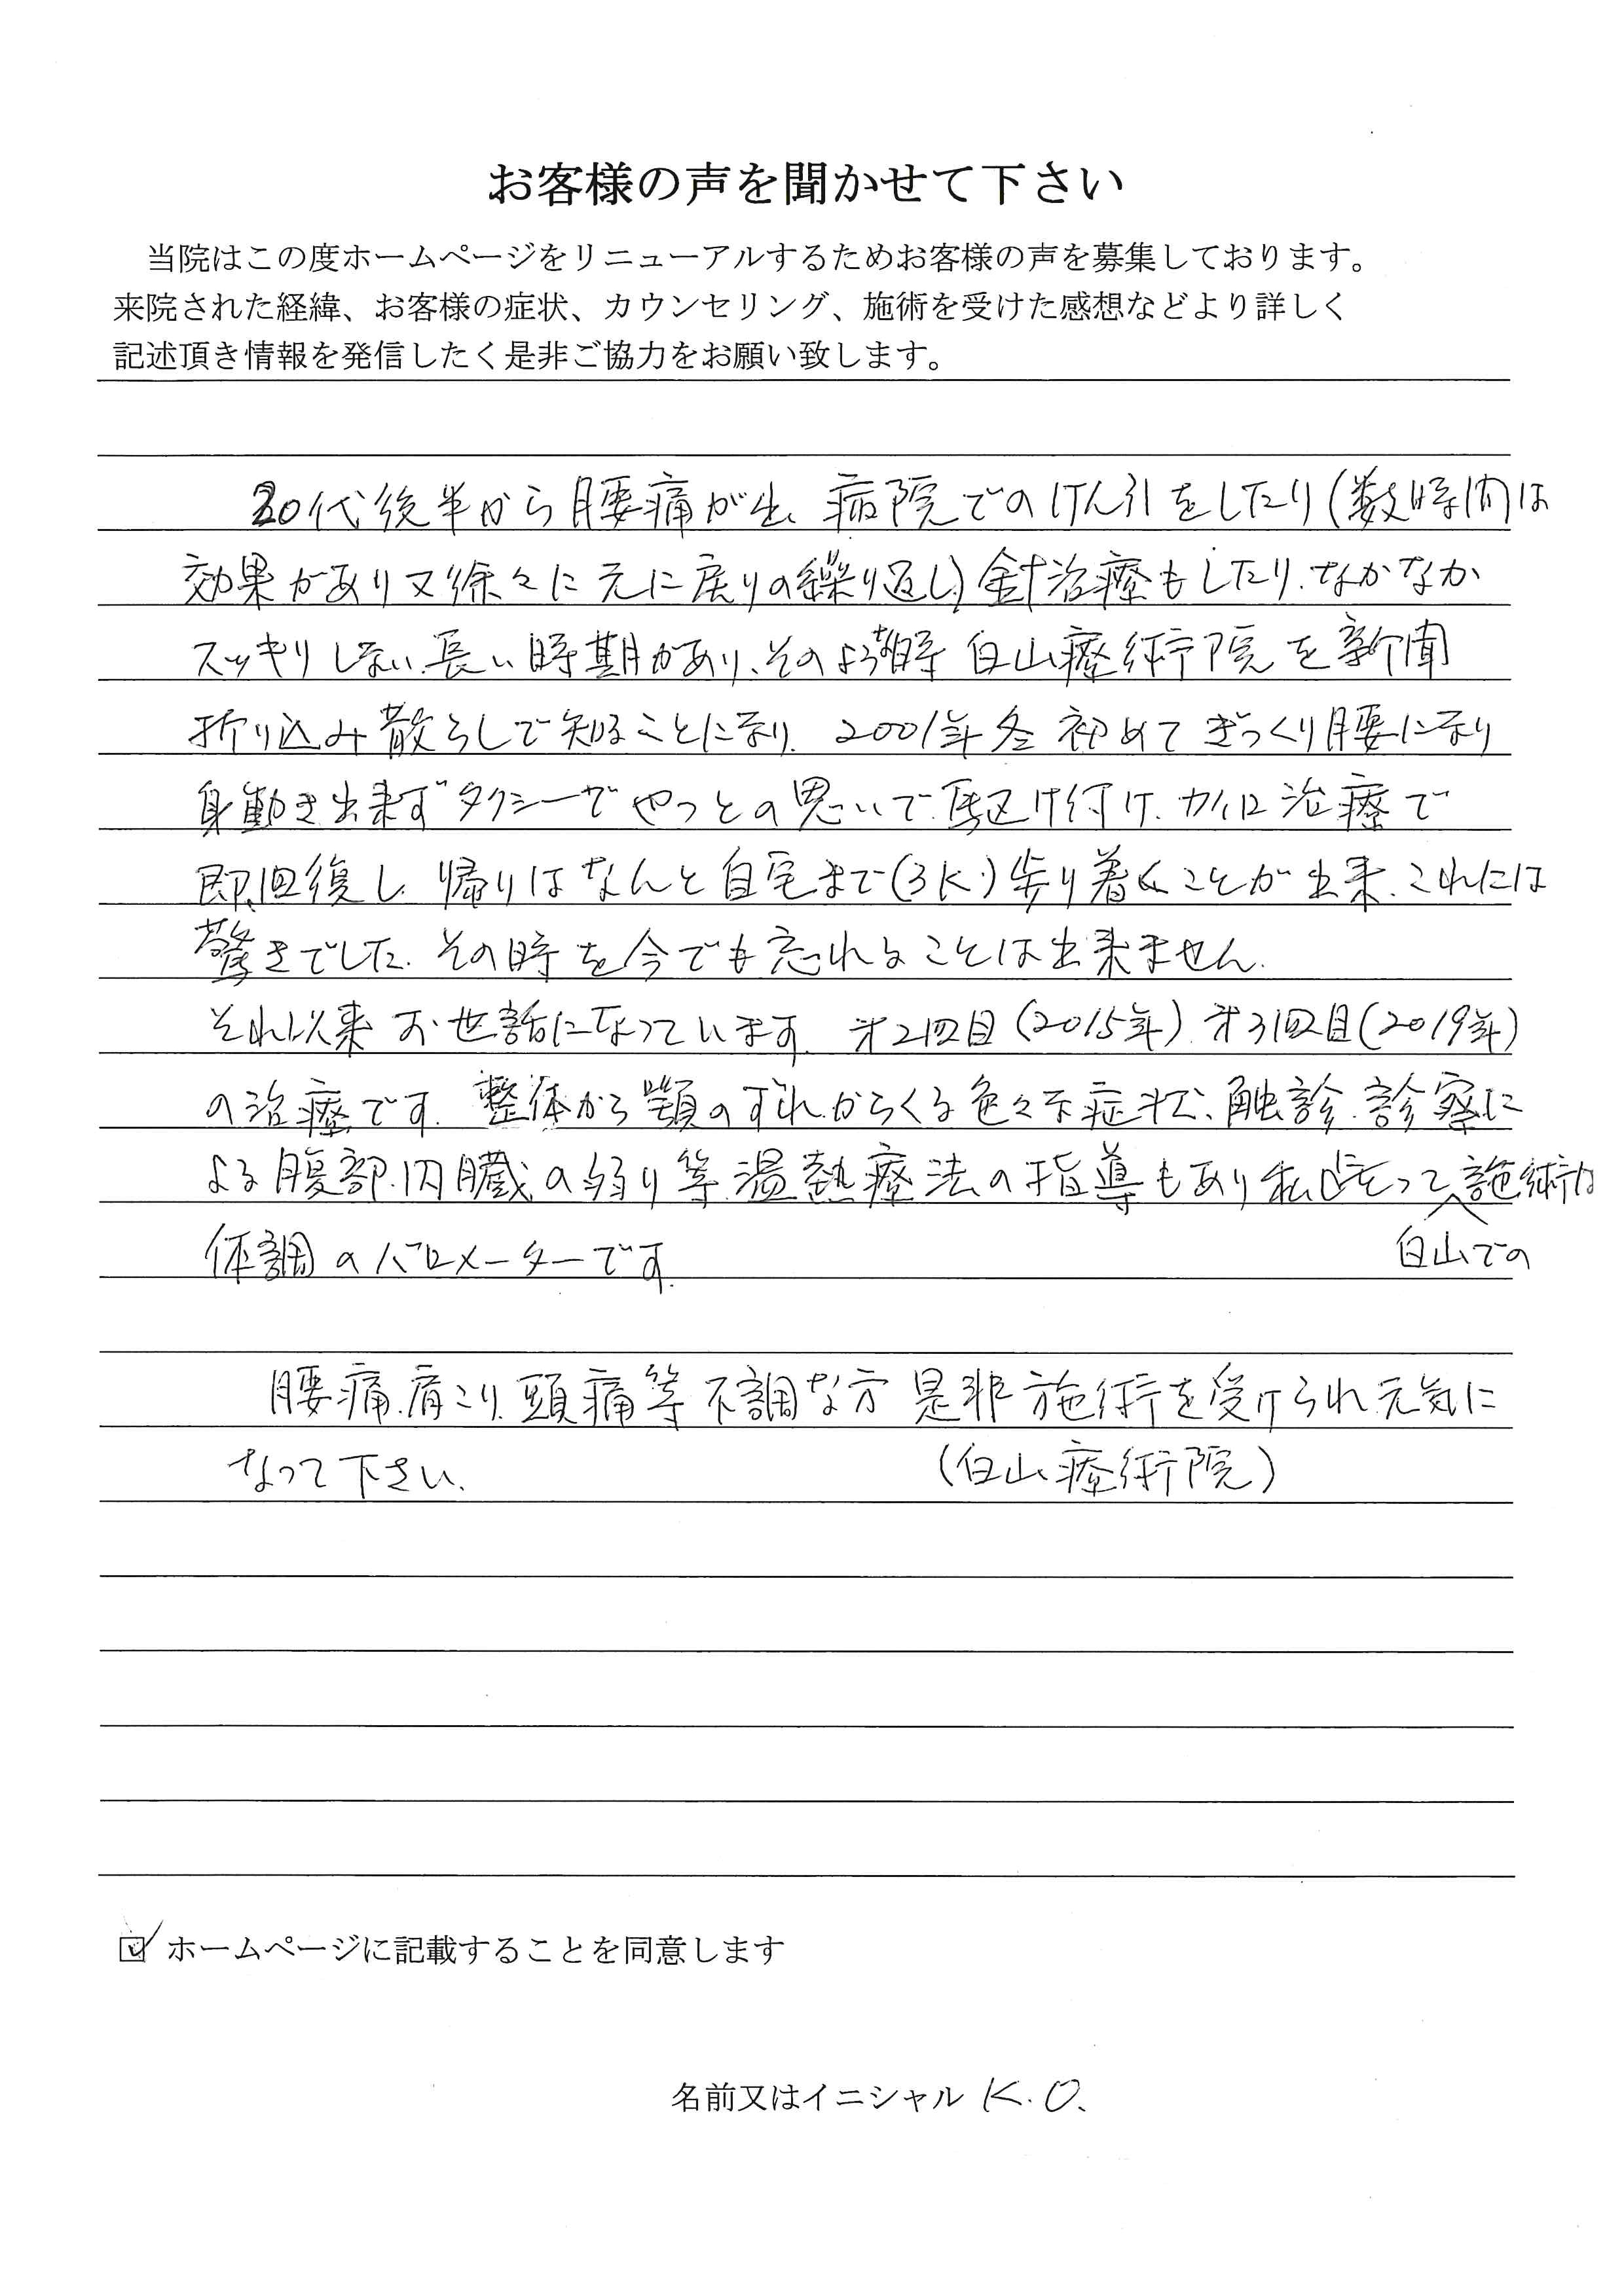 お客様の声を聞かせて下さい
当院はこの度ホームページをリニューアルするためお客様の声を募集しております。
来院された経緯、お客様の症状、カウンセリング、施術を受けた感想などより詳しく
記述頂き情報を発信したく是非ご協力をお願い致します。
20代後半から腰痛が出、病院でのけん引をしたり(数時間は
効果があり又徐々に元に戻りの繰り返し)針治療もしたり、なかなか
スッキリしない、長い時期があり、そのような時 白山療術院を新聞
折り込み散らしで知ることになり、2001年冬 初めてぎっくり腰になり
身動き出来ずタクシーでやっとの思いで、駆け付け、カイロ治療で
即、回復し、帰りはなんと自宅まで(3K)歩り着くことが出来、これには
驚きでした。その時を今でも忘れることは出来ません。
それ以来お世話になっています。第2回目(2015年)、第3回目(2019年)
の治療です。整体から顎のずれからくる色々な症状、触診、診察に
よる腹部、内臓の弱り等、温熱療法の指導もあり私にとって施術は
白山での
体調のバロメーターです。
腰痛、肩こり、頭痛等不調な方 是非施術を受けられ元気に
なって下さい。 (白山療術院)
ホームページに記載することを同意します
名前又はイニシャル K.O.